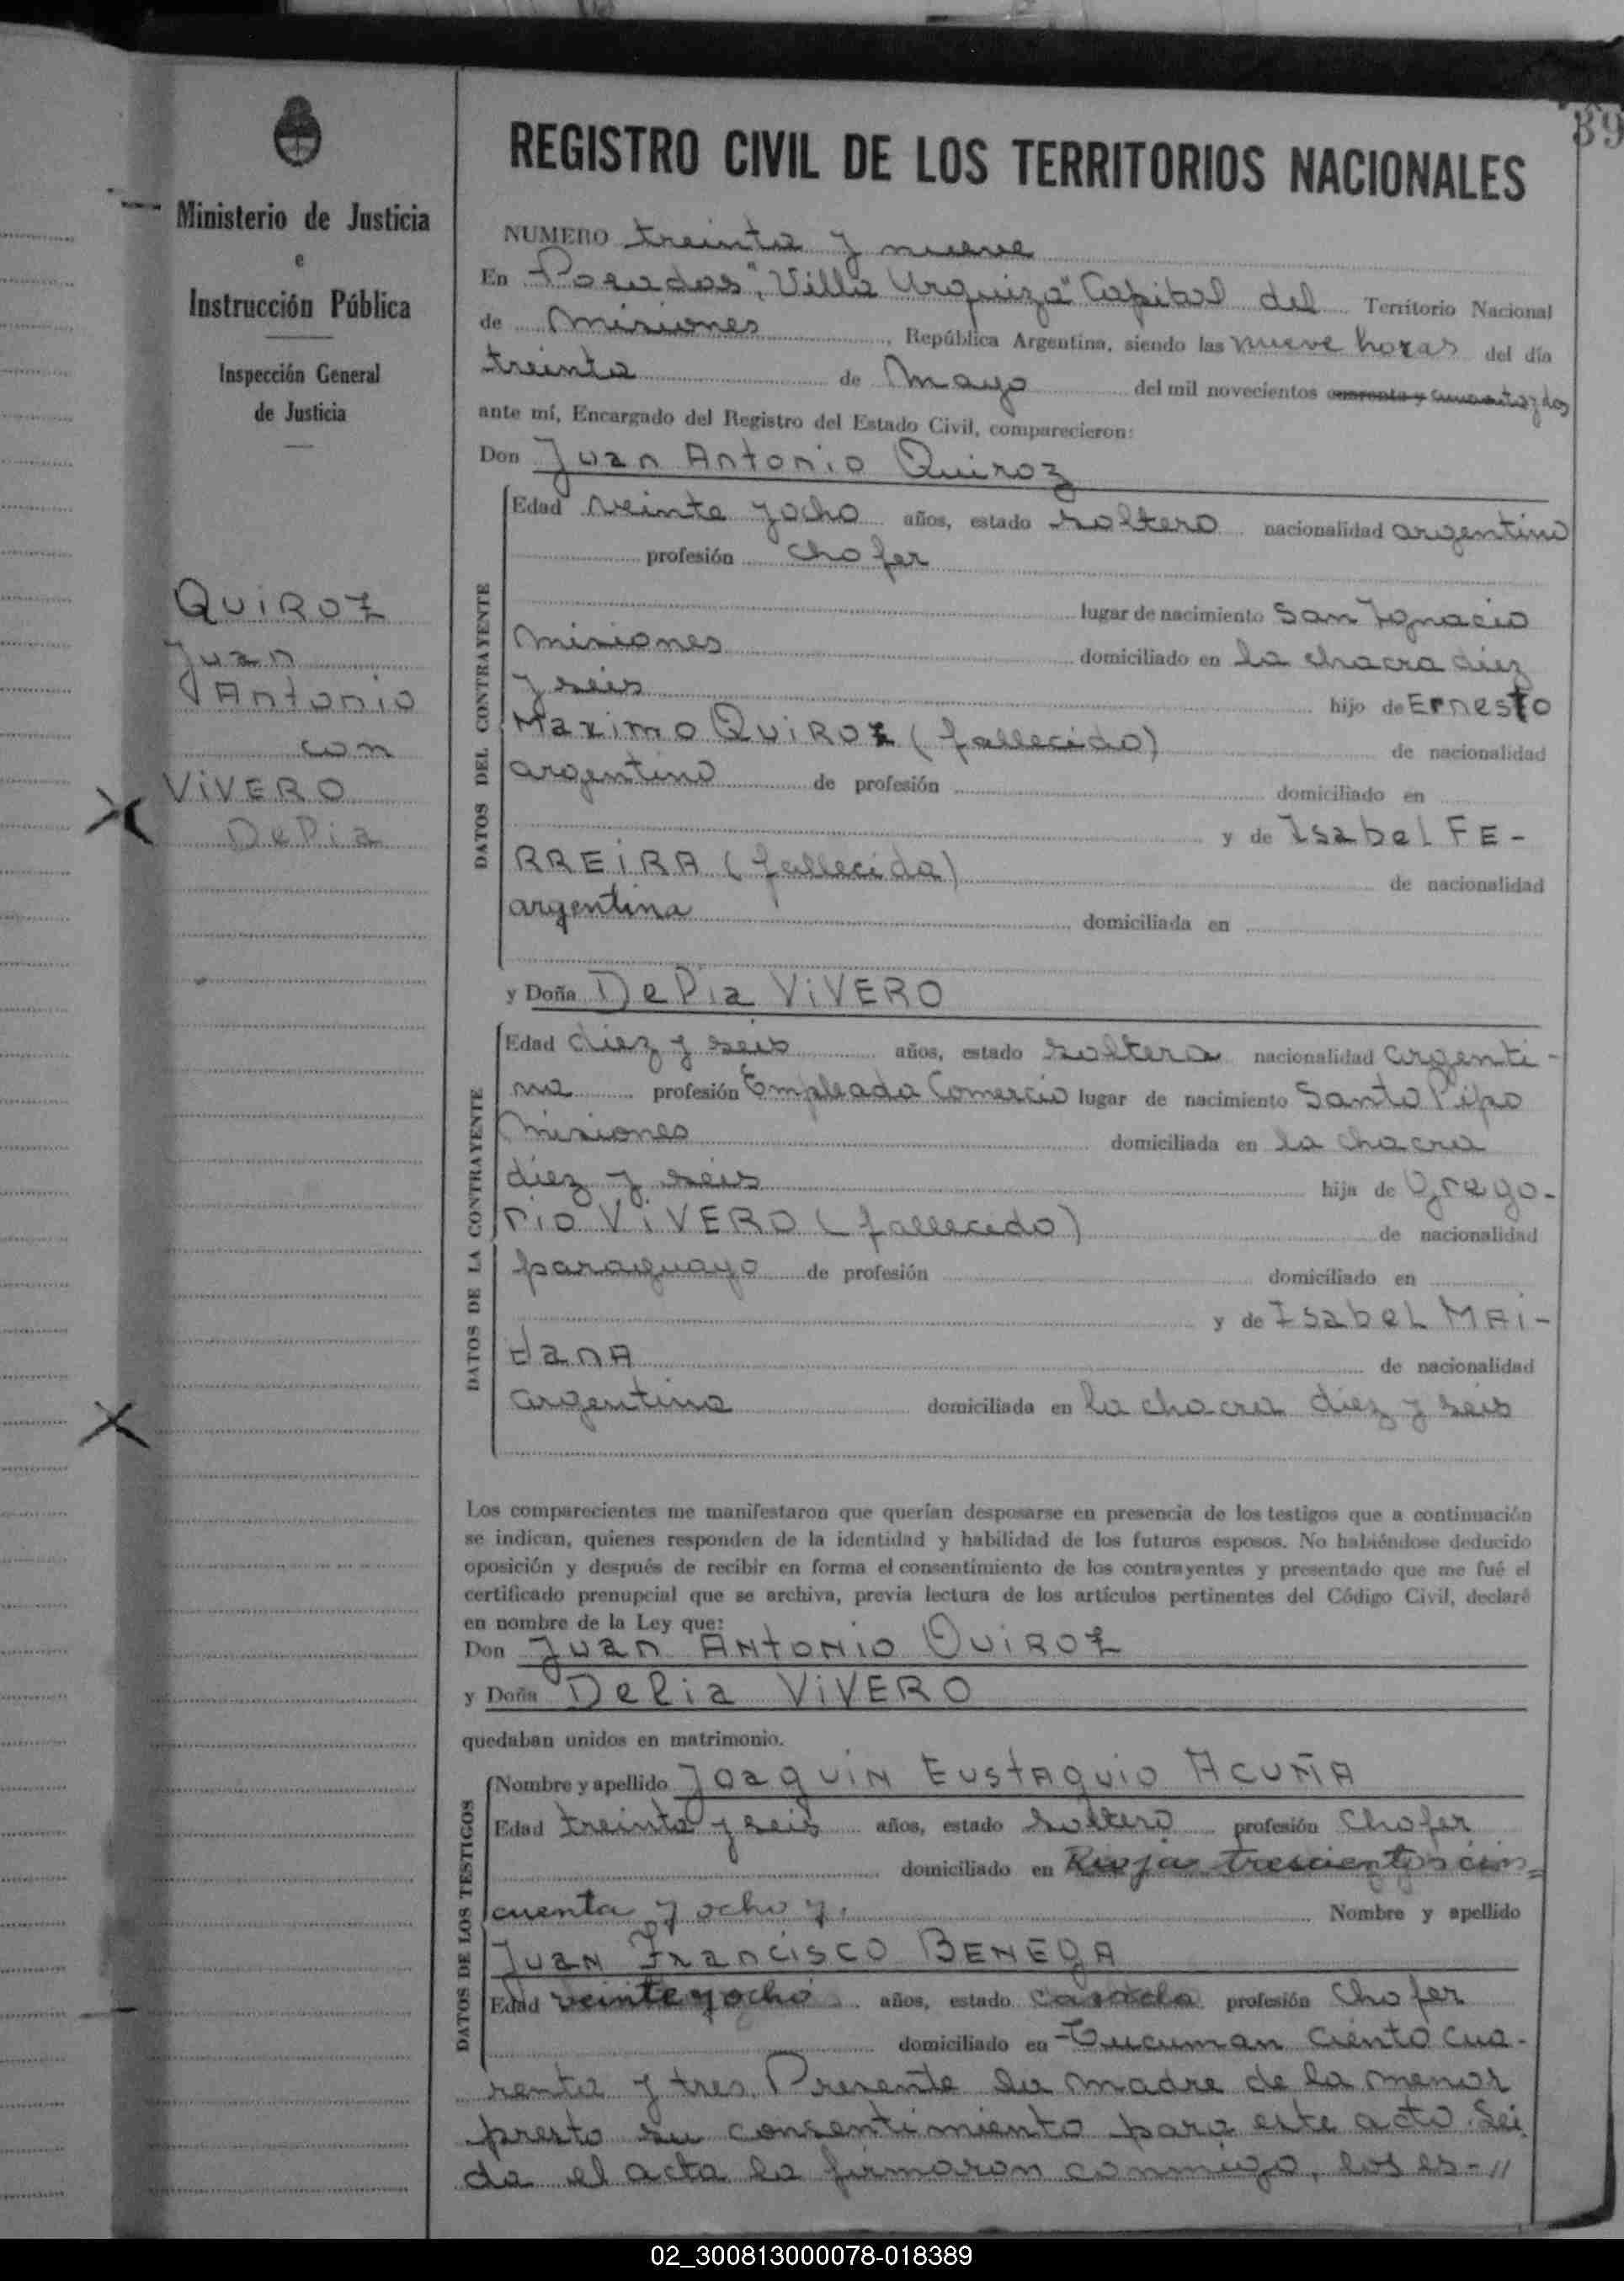 39
REGISTRO CIVIL DE LOS TERRITORIOS NACIONALES
Ministerio de Justicia
e
Instrucción Pública
Inspección General
de Justicia
QUIROZ
Juan
Antonio
con
VIVERO
Delia
NUMERO treinta y nueve
En Posadas, "Villa Urquiza" Capital del Territorio Nacional
de Misiones, República Argentina, siendo las nueve horas del día
treinta de Mayo del mil novecientos cuarenta y cincuenta y dos
ante mí, Encargado del Registro del Estado Civil, comparecieron:
Don Juan Antonio Quiroz
DATOS DEL CONTRAYENTE
Edad veinte yocho años, estado soltero nacionalidad argentino
profesión chofer
lugar de nacimiento San Ignacio
Misiones domiciliado en la chacra diez
y seis hijo de Ernesto
Maximo QUIROZ (fallecido) de nacionalidad
argentino de profesión domiciliado en
y de Isabel FE-
RREIRA (fallecida) de nacionalidad
argentina domiciliada en
y Doña Delia VIVERO
DATOS DE LA CONTRAYENTE
Edad diez y seis años, estado soltera nacionalidad argenti-
na profesión Empleada Comercio lugar de nacimiento Santo Pipo
Misiones domiciliada en la chacra
diez y seis hija de Grego-
rio VIVERO (fallecido) de nacionalidad
paraguayo de profesión domiciliado en
y de Isabel MAi-
danA de nacionalidad
argentina domiciliada en la chacra diez y seis
Los comparecientes me manifestaron que querían desposarse en presencia de los testigos que a continuación
se indican, quienes responden de la identidad y habilidad de los futuros esposos. No habiéndose deducido
oposición y después de recibir en forma el consentimiento de los contrayentes y presentado que me fué el
certificado prenupcial que se archiva, previa lectura de los artículos pertinentes del Código Civil, declaré
en nombre de la Ley que:
Don Juan Antonio QUIROZ
y Doña Delia VIVERO
quedaban unidos en matrimonio.
DATOS DE LOS TESTIGOS
Nombre y apellido Joaquin Eustaquio ACUÑA
Edad treinta y seis años, estado soltero profesión Chofer
domiciliado en Rioja trescientos cin=
cuenta y ocho y. Nombre y apellido
Juan Francisco BENEGA
Edad veinte yocho años, estado casado profesión Chofer
domiciliado en Tucuman ciento cua-
renta y tres. Presente la madre de la menor
presto su consentimiento para este acto. Lei
da el acta la firmaron conmigo, los es-//
02_300813000078-018389